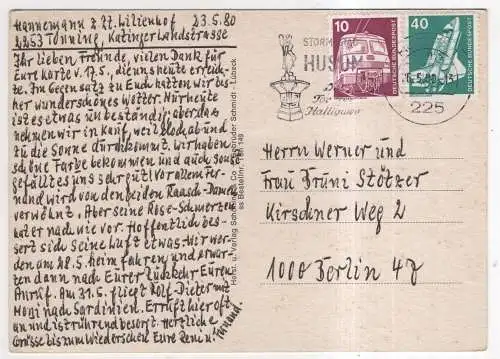 Hannemann z. Zt. Lilienhof 23.5.80
2253 Tönning, Katingerlandstrasse
Ihr lieben Freunde, vielen Dank für
Eure Karte v. 17.5., die uns heute erreich-
te. Im Gegensatz zu Euch hatten wir bis-
her wunderschönes Wetter. Nur heute
ist es etwas unbeständig, aber das
nehmen wir in Kauf, weil ab und
zu die Sonne durchkommt. Wir haben
schöne Farbe bekommen und auch sonst
gefällt es uns sehr gut! Vor allem Fer-
nund wird von den beiden Raasch-Damen
verwöhnt. Aber seine Rose-Schmerzen
hat er nach wie vor. Hoffentlich bes-
sert sich seine Luft etwas. Wir wer-
den am 28.5. heimfahren und erwar-
ten dann nach Eurer Rückkehr Euren
Anruf. Am 31.5. fliegt Rolf-Dieter mit
Mogi nach Sardinien. Er ruft hier oft
an und ist rührend besorgt. Herzliche
Grüsse bis zum Wiedersehen Eure
Horst u. Verlag Schöning & Co. Gebrüder Schmidt - Lübeck
Bestellnr. 149
STORM
HUSUM
Halligwelt
10
DEUTSCHE BUNDESPOST
40
DEUTSCHE BUNDESPOST
225
Herrn Werner und
Frau Fruni Stötzer
Kirschner Weg 2
1000 Berlin 47